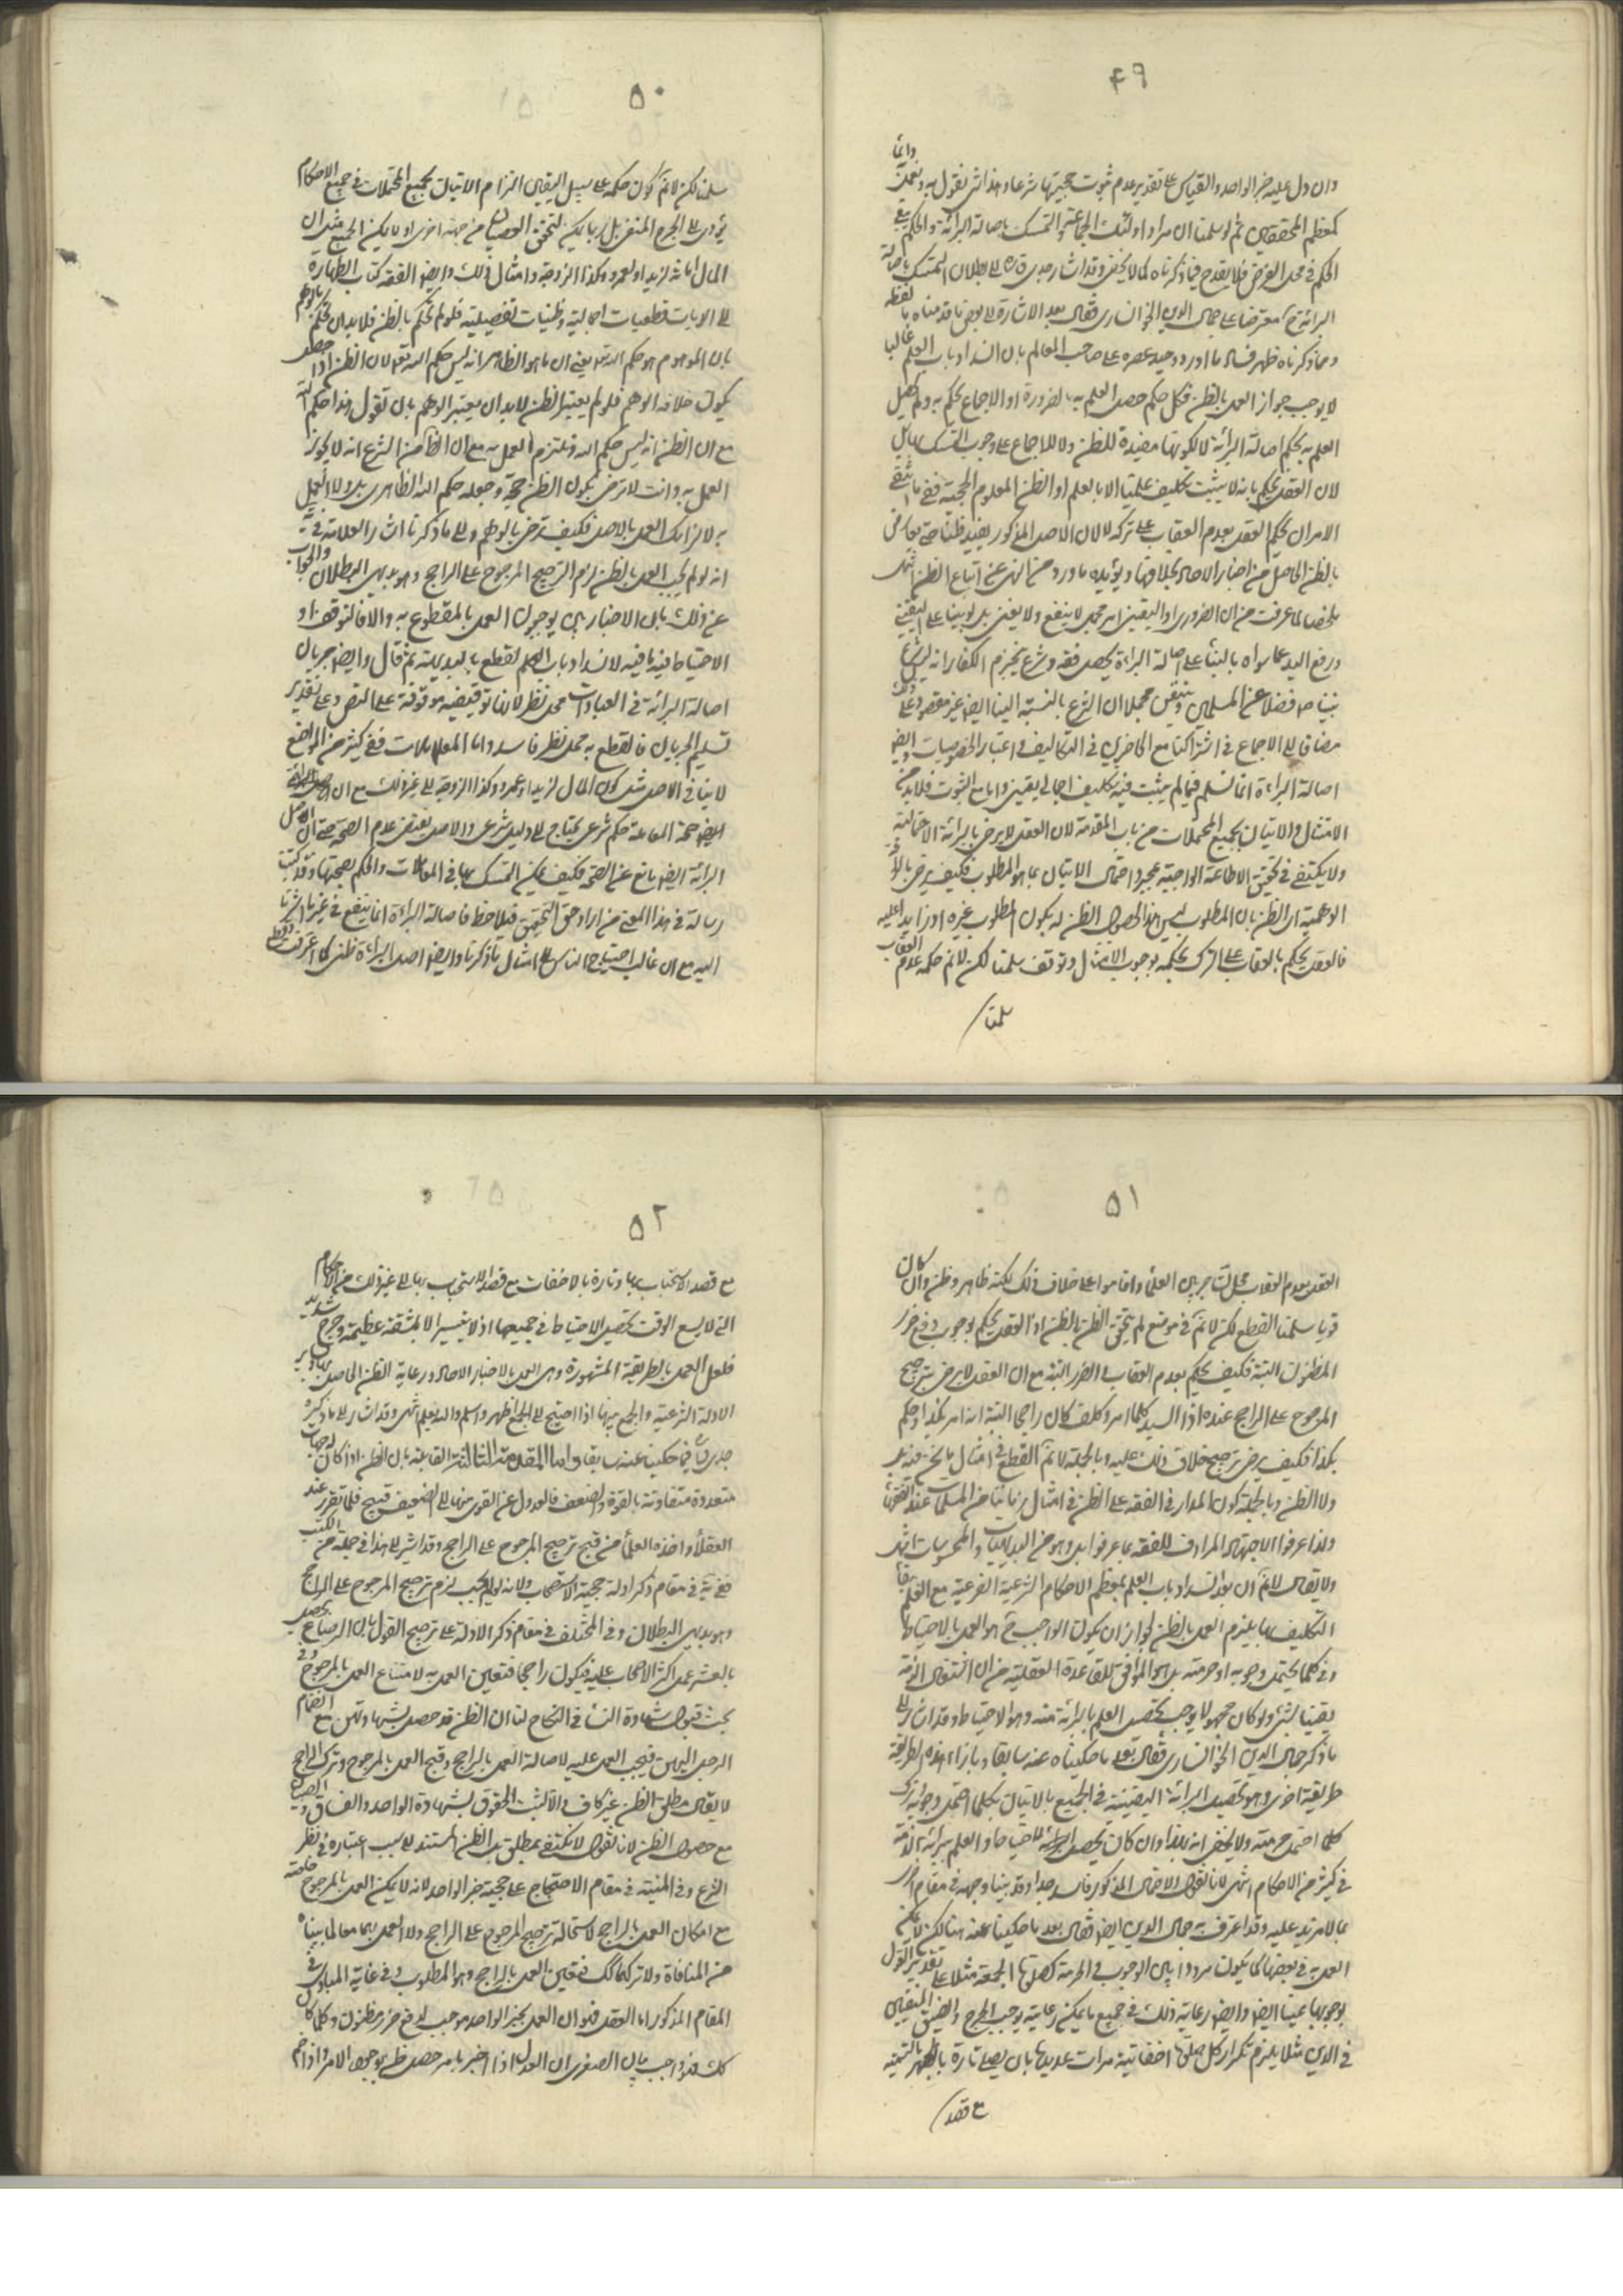 ٤٩
وان دل عليه خبر الواحد والقياس على تقدير عدم ثبوت حجيتها شرعا وهذا شئ نقول به
كمعظم المحققين ثم لو سلمنا ان مراد اولئك الجماعة التمسك باصالة البرائة والحكم
الحكم في محل الفرض فلا يقدح فيما ذكرناه كما لا يخفى وقد اشار جدي قده الى بطلان التمسك باصالة
البرائة معترضا على جمال الدين الخوانساري فقال بعد الاشارة الى بعض ما قدمناه
ومما ذكرناه ظهر فساد ما اورد وحيد عصره على صاحب المعالم بان انسداد باب العلم غالبا
لا يوجب جواز العمل بالظن فكل حكم حصل العلم به بالضرورة او الاجماع نحكم به وما لم يحصل
العلم به نحكم باصالة البرائة لا لكونها مفيدة للظن ولا للاجماع على وجوب التمسك بها بل
لان العقل يحكم بانه لا يثبت تكليف علينا الا بالعلم او الظن المعلوم الحجية ففيما انتفى
الامران يحكم العقل بعدم العقاب على تركه لا لان الاصل المذكور يفيد ظنا حتى يعارض
بالظن الحاصل من اخبار الآحاد بخلافها ويؤيده ما ورد من النهي عن اتباع الظن انتهى
ملخصا لما عرفت من ان الضروري او اليقيني امر مجمل لا ينفع ولا يغني بل لو بنينا على اليقيني
ورفع اليد عما سواه بالبناء على اصالة البراءة يحصل فقه وشرع يجزم الكفار انه ليس شرع
نبينا ص فضلا عن المسلمين
مضافا الى الاجماع في اشتراكنا مع الحاضرين في التكاليف في اعتبار الخصوصيات وايضا
اصالة البراءة انما تسلم فيما لم يثبت فيه تكليف اجمالي يقيني واما مع الثبوت فلا بد من
الامتثال والاتيان بجميع المحتملات من باب المقدمة لان العقل لا يرضى بالبرائة الاحتمالية
ولا يكتفى في تحقيق الاطاعة الواجبة بمجرد احتمال الاتيان بما هو المطلوب فكيف يرضى بالبرائة
الوهمية اي الظن بان المطلوب ليس هذا لحصول الظن له بكون المطلوب غيره او زايدا عليه
فالعقل يحكم بالعقاب على الترك بحكمه بوجوب الامتثال وتوقف سلمنا لكن لا نم حكمه بعدم العقاب
سلمنا
٥٠
سلمنا لكن لا نم كون حكمه على سبيل اليقين التزام الاتيان بجميع المحتملات في جميع الاحكام
يؤدي الى الحرج المنفي بل ربما يكن لتحقق العصيان من جهة اخرى او لا يمكن الجمع مثل ان
المال اما ثه لزيد او لعمرو وكذا الزوجة وامثال ذلك وايض الفقه كتاب الطهارة
الى الديات قطعيات اجمالية وظنيات تفصيلية فلو لم نحكم بالظن فلا بد ان نحكم بالوهم
بان الموهوم هو حكم الله تعه يعني ان ما هو الظاهر انه ليس حكم الله تعه لان الظن اذا حصل
يكون خلافه الوهم فلو لم يعتبر الظن لا بد ان يعتبر الوهم بان نقول هذا حكم الله
مع ان الظن انه ليس حكم الله ونلتزم العمل به مع ان الظاهر من الشرع انه لا يجوز
العمل به وانت لا ترضى بكون الظن حجة وجعله حكم الله الظاهري بل ولا العمل
به لالزامك العمل بالاصل فكيف ترضى بالوهم والى ما ذكرنا اشار العلامة في
انه لو لم يجب العمل بالظن لزم الترجيح المرجوح على الراجح وهو بديهي البطلان والجواب
عن ذلك بان الاخباريين يوجبون العمل بالمقطوع به والا فالتوقف او
الاحتياط فيه ما فيه لانسداد باب العلم لقطع بالبديهة ثم قال وايض جريان
اصالة البرائة في العبادات محل نظر لانها توقيفية موقوفة على النص وعلى تقدير
تسليم الجريان فالقطع به محل نظر فاسد واما المعاملات ففي كثير من المواضع
لا يتأتى الاصل مثل كون المال لزيد او عمرو وكذا الزوجة الى غير ذلك مع ان اصل البرائة
ايض صحة المعاملة حكم شرعي يحتاج الى دليل شرعي والاصل يقتضي عدم الصحة حتى ان الاصل
البرائة ايض مانع عن الصحة فكيف يمكن التمسك بها في المعاملات والحكم بصحتها وقد كتبت
رسالة في هذا المعنى من اراد حق التحقيق فيلاحظ فاصالة البراءة انما ينفع في غير ما اشرنا
اليه مع ان غالب احتياج الناس الى امثال ما ذكرنا وايض اصل البراءة ظني كما اعترفت
٥١
العقل بعدم العقاب محل تشاجر بين العلماء واقاموا على خلاف ذلك لكنه ظاهر وظن وان كان
قويا سلمنا القطع لكن لا نم في موضع لم يتحقق الظن بالظن اذ العقل يحكم بوجوب دفع ضرر
المظنون البتة فكيف يحكم بعدم العقاب والضرر البتة مع ان العقل لا يرضى بترجيح
المرجوح على الراجح عنده اذا السيد كلما امر وكلف كان راجحا البتة انه امر بكذا وحكم
بكذا فكيف يرضى بترجيح خلاف ذلك عليه وبالجملة لا نم القطع في امثال ما نحن فيه بل
ولا الظن وبالجملة كون المدار في الفقه على الظن في امثال زماننا من المسلمات عند الفقهاء
ولذا عرفوا الاجتهاد المرادف للفقه بما عرفوا بل وهو من البديهيات والمحسوسات انتهى
ولا يقال لا نم ان بعد انسداد باب العلم بمعظم الاحكام الشرعية الفرعية مع العلم ببقاء
التكليف بها يلزم العمل بالظن لجواز ان يكون الواجب ح هو العمل بالاحتياط
في كلما يحتمل وجوبه او حرمته بل هو الموافق للقاعدة العقلية من ان اشتغال الذمة
يقينا بشئ ولو كان مجهولا يوجب تحصيل العلم بالبرائة منه وهو الاحتياط وقد اشار الى
ما ذكر جمال الدين الخوانساري فقال بعد ما حكيناه عنه سابقا وبازاء هذه الطريقة
طريقة اخرى وهو تحصيل البرائة اليقينية في الجميع بالاتيان بكلما احتمل وجوبه وترك
كلما احتمل حرمته ولا يخفى انه بهذا وان كان يحصل الاحتياط والعلم ببرائة الذمة
في كثير من الاحكام انتهى لانا نقول الاحتمال المذكور فاسد جدا وقد بينا وجهه في مقام اخر
بما لا مزيد عليه وقد اعترف به جمال الدين ايض فقال بعد ما حكينا عنه هنا لكن لا يمكن
العمل به في بعضها كما يكون مرددا بين الوجوب والحرمة كصلوة الجمعة مثلا على تقدير القول
بوجوبها عينا ايض وايض رعاية ذلك في جميع ما يمكن رعايته يوجب الحرج والضيق المنفيين
في الدين مثلا يلزم تكرار كل صلوة اخفاتية مرات عديدة بان يصلي تارة بالجهر بالتسمية
مع قصد
٥٢
مع قصد الاستحباب بها وتارة بالاخفات مع قصد الاستحباب بها الى غير ذلك من الاحكام
التي لا يسع الوقت تحصيل الاحتياط في جميعها اذ لا يتيسر الا بمشقة عظيمة وحرج شديد
فلعل العمل بالطريقة المشهورة وهي العمل بالاخبار الآحاد ورعاية الظن الحاصل
الادلة الشرعية والجمع بينها اذا احتيج الى الجمع اظهر واسلم والله يعلم انتهى وقد اشار الى ما ذكره
جدي قده فيما حكينا عنه سابقا واما المقدمة الثالثة القائلة بان الظن اذا كان له جهات
متعددة متفاوتة بالقوة والضعف فالعدول عن القوي منها الى الضعيف قبيح فلما تقرر عند
العقلاء واخذه العلماء من قبح ترجيح المرجوح على الراجح وقد اشير الى هذا في جملة من الكتب
ففي يه في مقام ذكر ادلة حجية الاستصحاب ولانه لو لم يجب لزم ترجيح المرجوح على الراجح
وهو بديهي البطلان وفي المختلف في مقام ذكر الادلة على ترجيح القول بان الرضاع يحصل
بالعشر عمل اكثر الاصحاب عليه فيكون راجحا فتعين العمل به لامتناع العمل بالمرجوح وفي
بحث قبول شهادة النساء في النكاح لنا ان الظن قد حصل بشهادتهن مع انضمام
الرجل اليهن فيجب العمل عليه لاصالة العمل بالراجح وقبح العمل بالمرجوح وترك الراجح
لا يقال مطلق الظن غير كاف والا لثبت الحقوق بشهادة الواحد والفساق والصبيان
مع حصول الظن لانا نقول لا نكتفي بمطلق بل الظن المستند الى سبب اعتباره في نظر
الشرع وفي المنية في مقام الاحتجاج على حجية خبر الواحد لانه لا يمكن العمل بالمرجوح خاصة
مع امكان العمل بالراجح لاستحالة ترجيح المرجوح على الراجح ولا العمل بهما معا لما بيناه
من المنافاة ولا تركهما لك فتعين العمل بالراجح وهو المطلوب وفي غاية المبادي في
المقام المذكور اما العقل فهو ان العمل بخبر الواحد موجب لدفع ضرر مظنون وكلما كان
كك فهو واجب بيان الصغرى ان العدل اذا اخبر بامر حصل ظن بوجود الامر